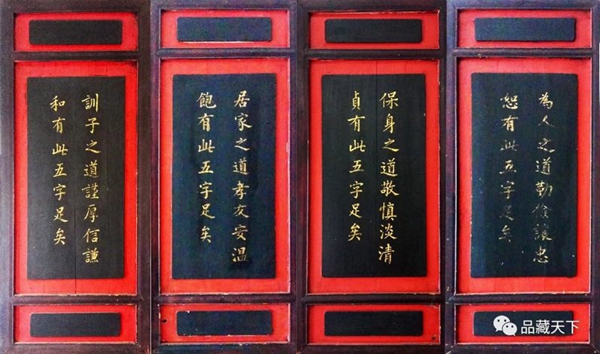 為人之道勤儉讓忠
恕有此五字足矣
保身之道敬慎淡清
貞有此五字足矣
居家之道孝友安溫
飽有此五字足矣
訓子之道謹厚信謙
和有此五字足矣
品藏天下